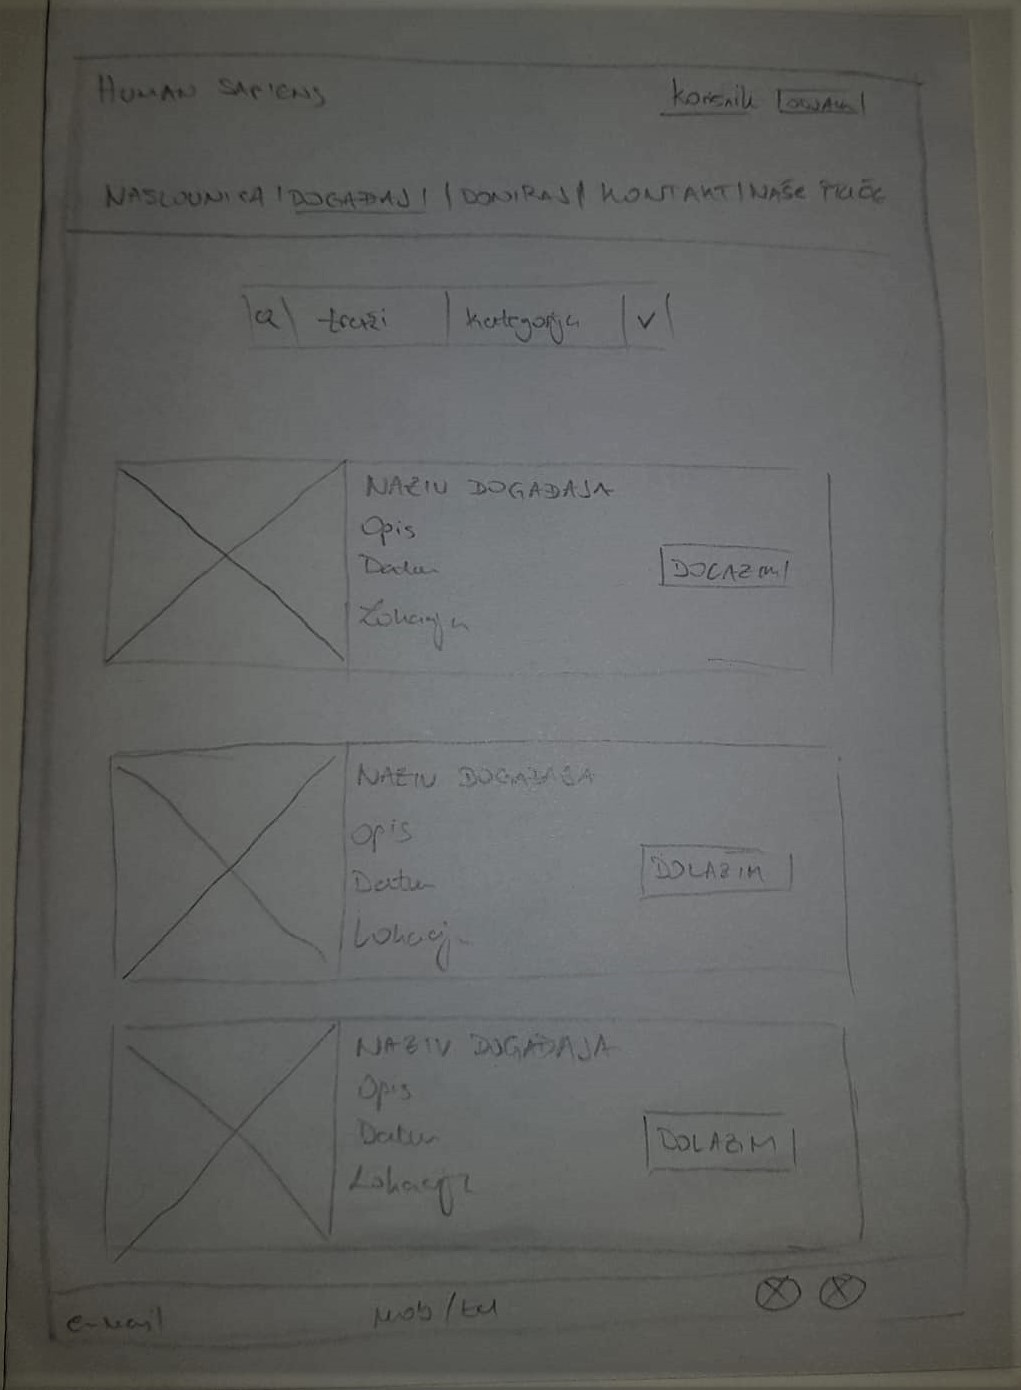 HUMAN SAPIENS
Korisnik
NASLOVNICA | DOGAĐAJI | DONIRAJ | KONTAKT | NAŠE PRIČE
traži kategorija
NAZIV DOGAĐAJA
Opis
Datum
DOLAZIM
Lokacija
NAZIV DOGAĐAJA
Opis
Datum
DOLAZIM
Lokacija
NAZIV DOGAĐAJA
Opis
Datum
DOLAZIM
Lokacija
e-mail mob/tel